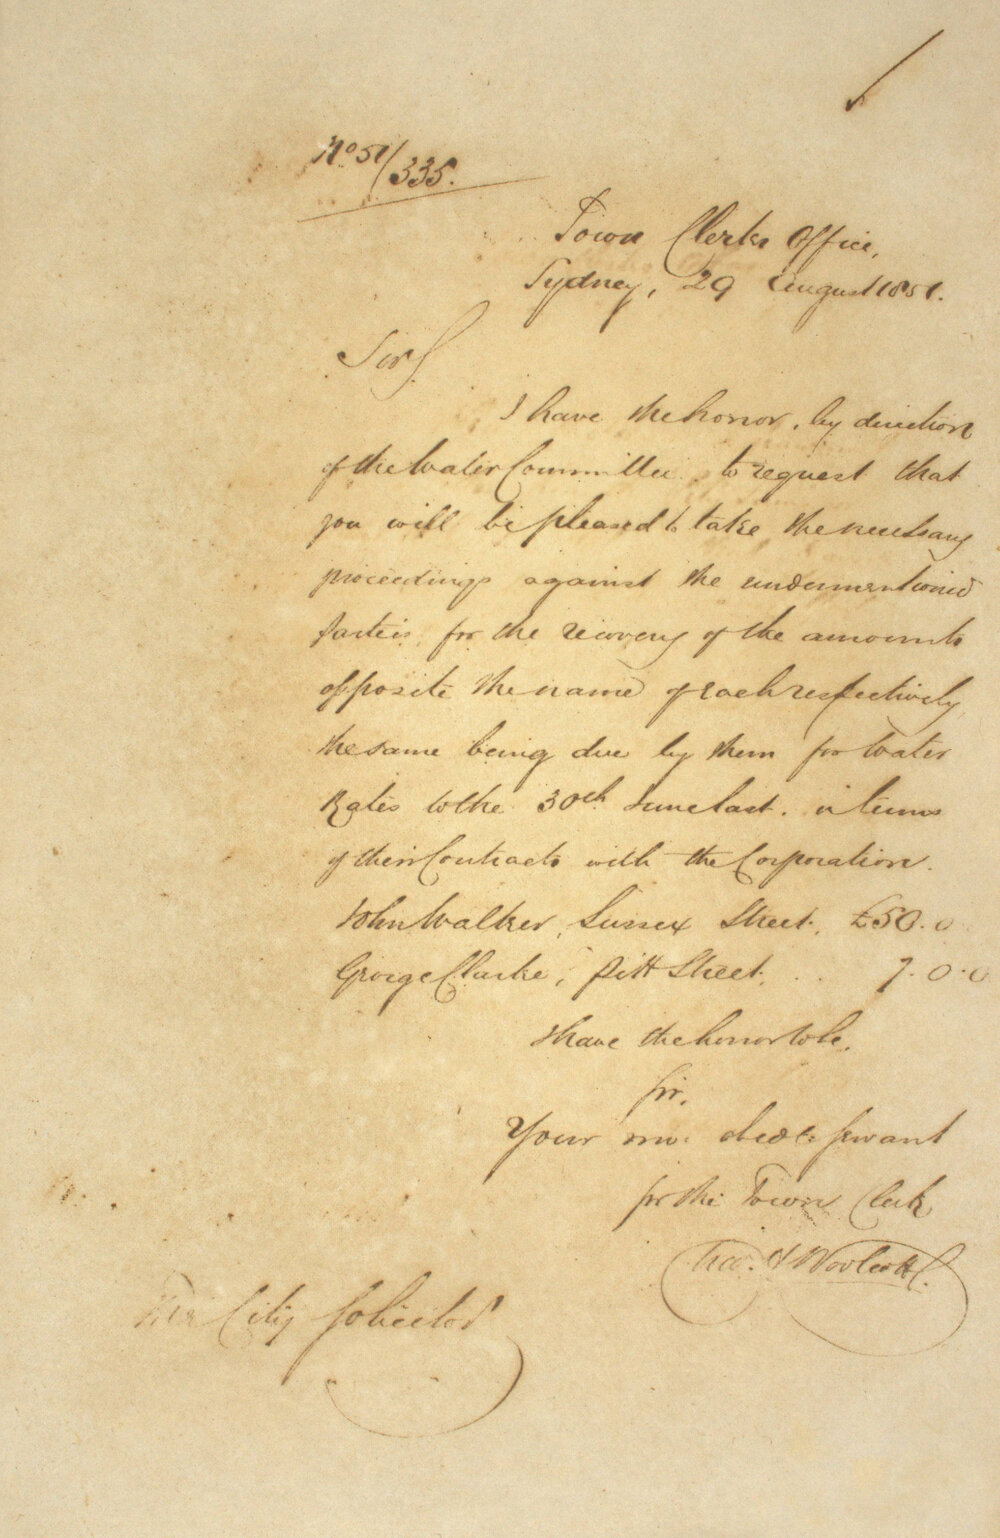 No 51/335.
Town Clerks Office,
Sydney, 29 August 1851.
Sir,
I have the honor, by direction
of the Water Committee to request that
you will be pleased to take the necessary
proceedings against the undermentioned
parties for the recovery of the amounts
opposite the name of each respectively
the same being due by them for Water
Rates to the 30th June last. in terms
of their Contracts with the Corporation.
John Walker, Sussex Street, £50.0
George Clarke, Pitt Street, .. 7.0.0
I have the honor to be,
Sir,
Your mo: obedt: servant
for the Town Clerk
Woolcott
The City Solicitor